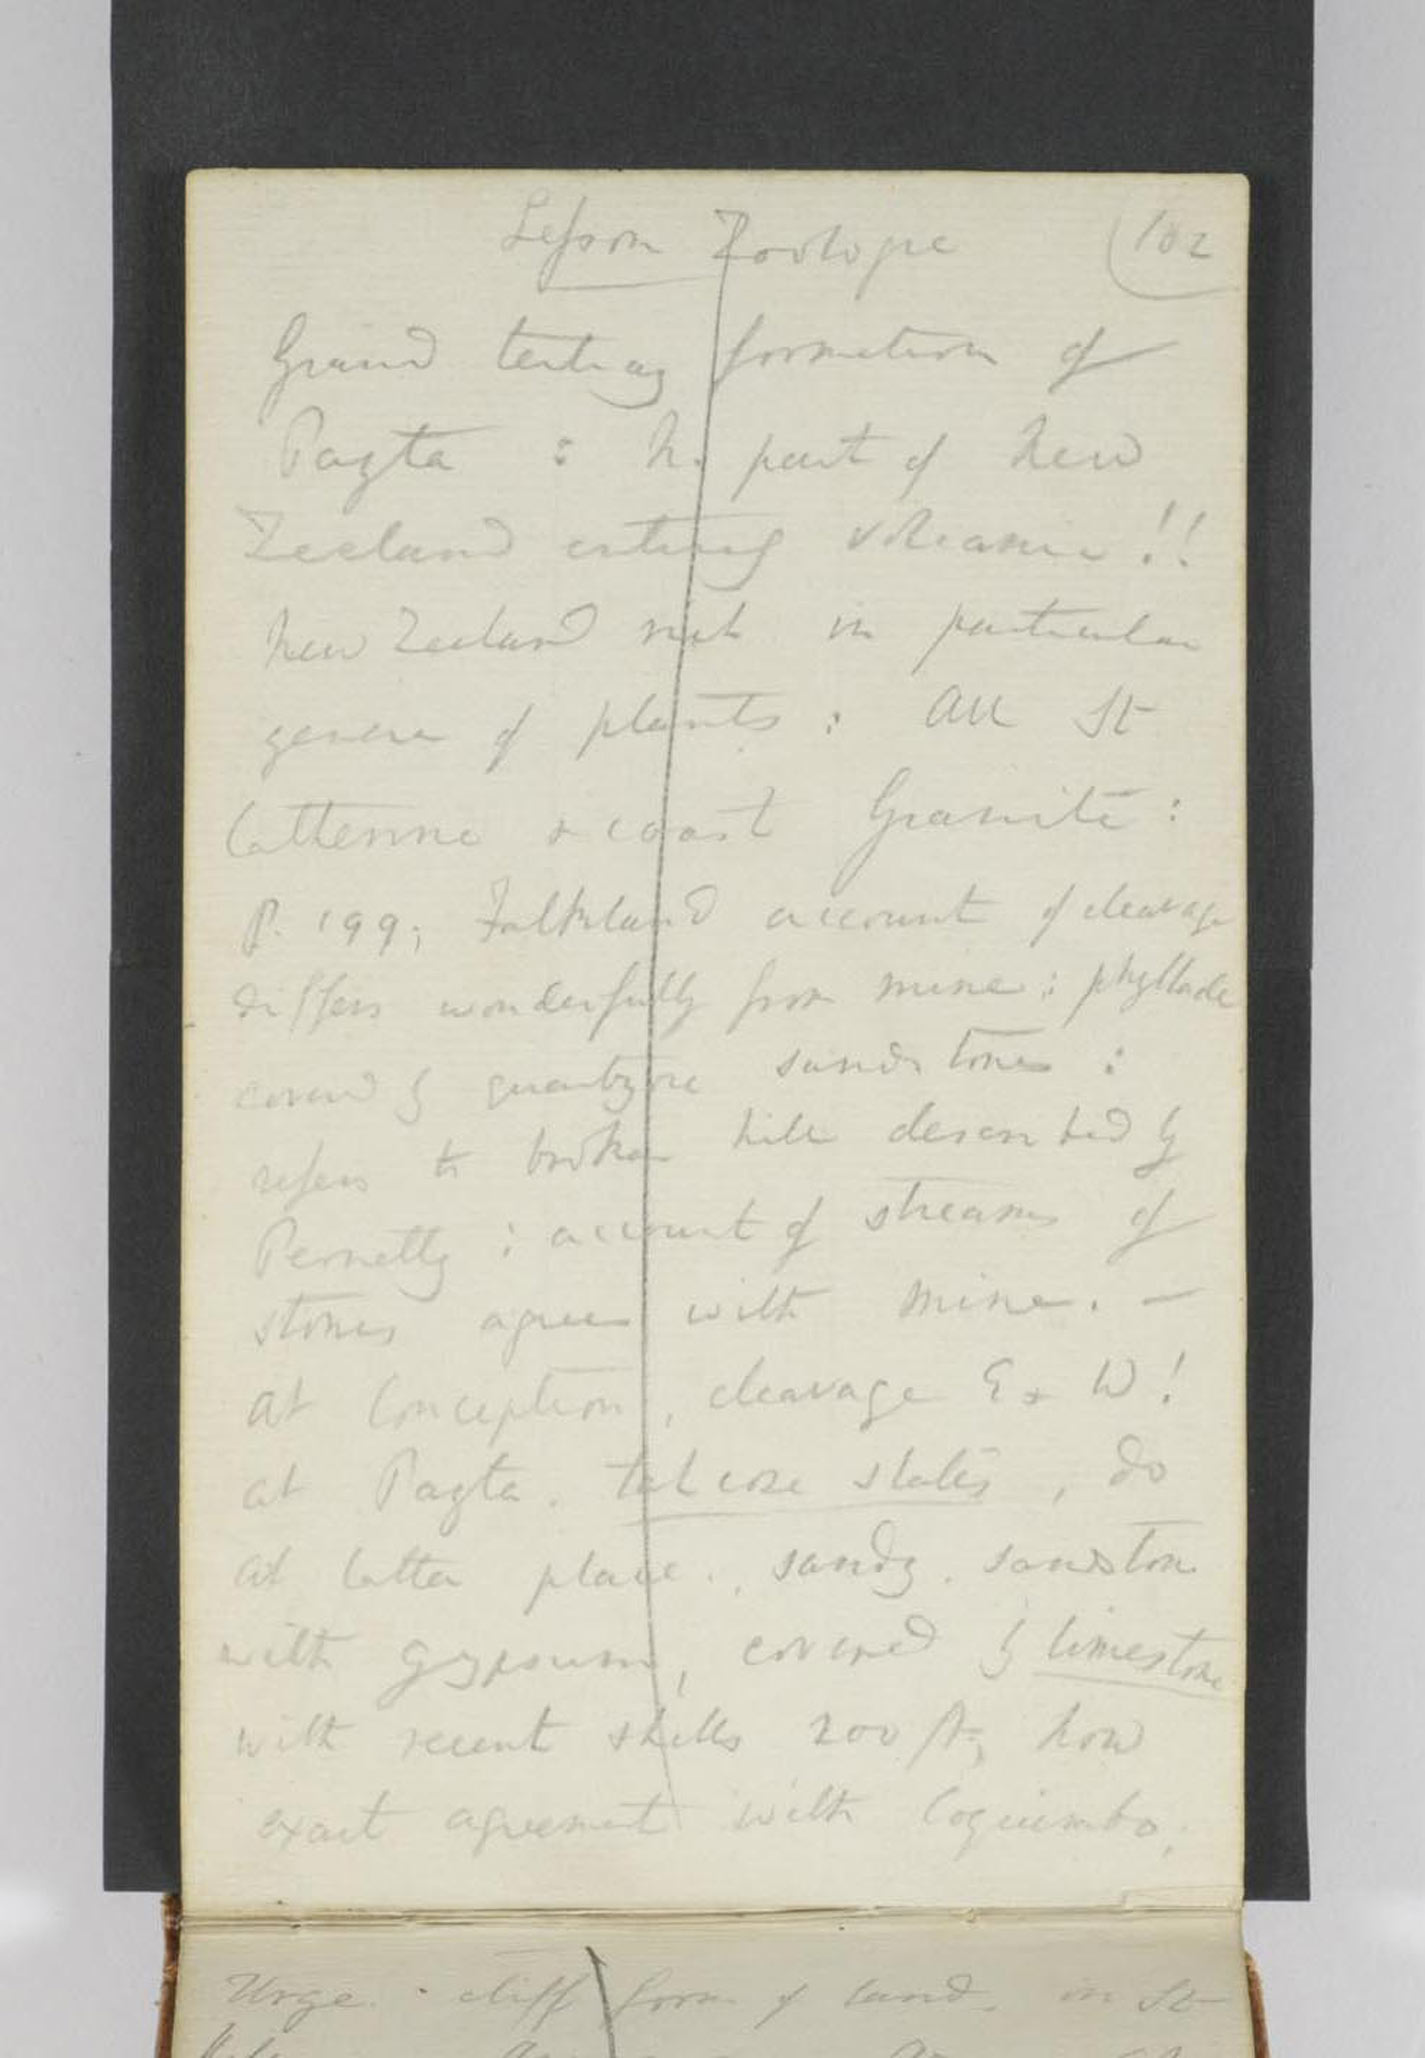 Lesson Zoologie (102
Grand tertiary formation of
Pagta : N. part of New
Zeeland entirely volcanic!!
New Zeeland rich in particular
genera of plants : All St
Catherine & coast Granite :
P. 199; Falkland account of cleavage
differs wonderfully from mine : phyllade
covered by quartzose sandstones :
refers to broken hills described by
Pernetty : account of streams of
stones agrees with mine. —
At Conception, cleavage E & W!
at Pagta. talcose slates, do
at latter place. sandy. sandstone
with gypsum, covered by limestone
with recent shells 200 ft, how
exact agreement with Coquimbo,
Urge. cliff form of land, in St